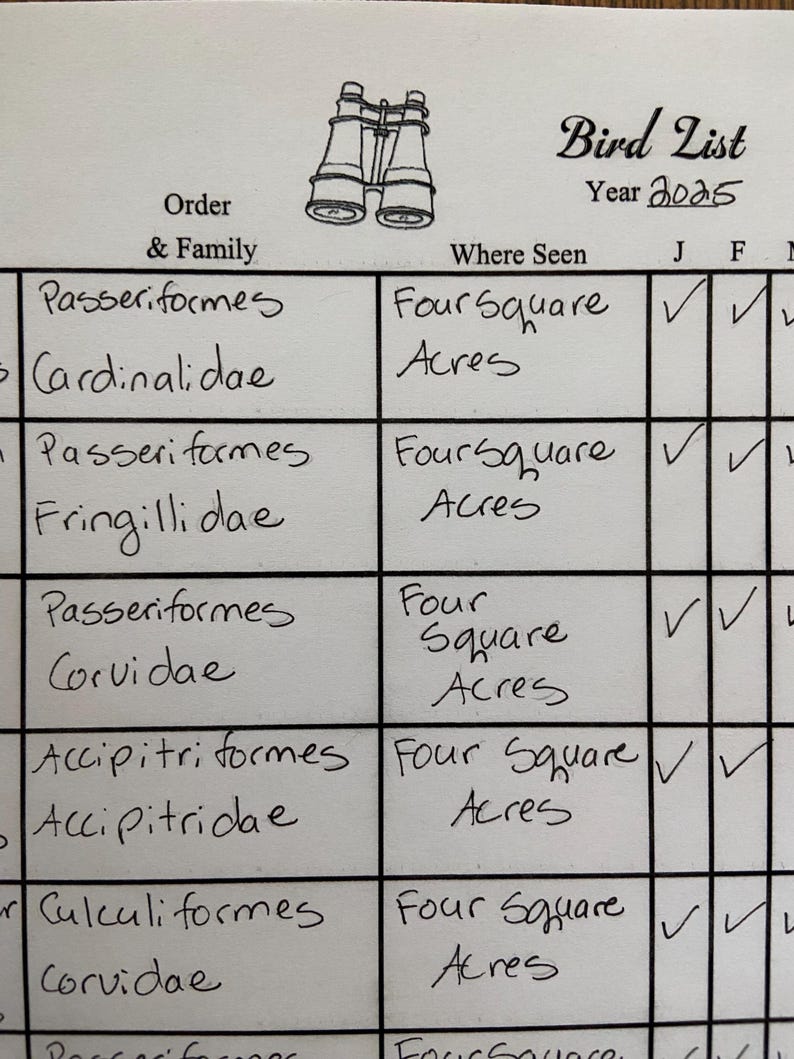 Bird List
Year 2025
Order
& Family
Where Seen
J
F
Passeriformes
Cardinalidae
Foursquare
Acres
✓
✓
Passeriformes
Fringillidae
Foursquare
Acres
✓
✓
Passeriformes
Corvidae
Four
Square
Acres
✓
✓
Accipitriformes
Accipitridae
Four Square
Acres
✓
✓
Culculiformes
Corvidae
Four Square
Acres
✓
✓
Passeriformes
Foursquare